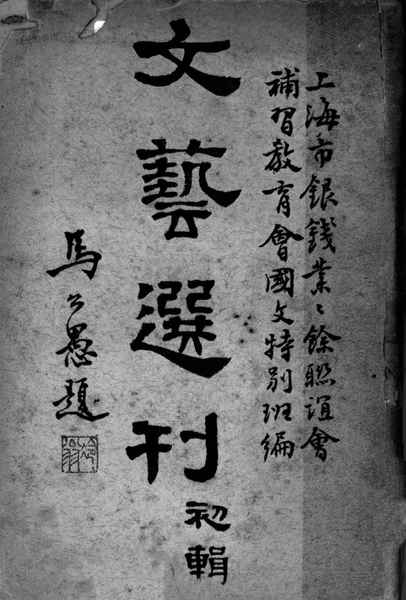 上海市銀錢業〻餘聯誼會
補習教育會國文特別班編
文藝選刊
初輯
馬公愚題